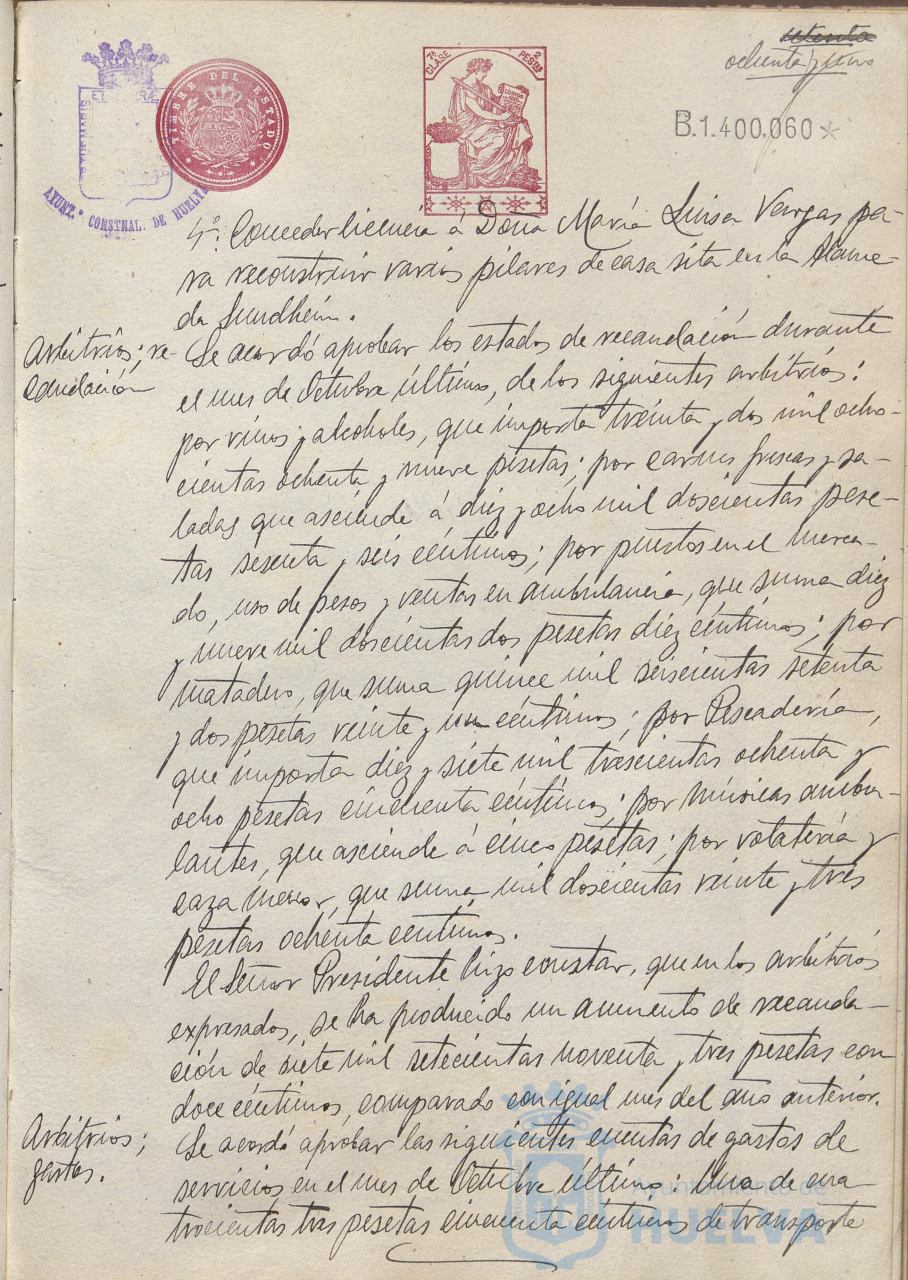 setenta
ochenta y uno
B.1.400.060*
7ª CLASE
2 PESTAS
TIMBRE DEL ESTADO
AYUNT.º CONSTNAL. DE HUELVA
4º. Conceder licencia á Doña María Luisa Vargas pa-
ra reconstruir varios pilares de casa sita en la Alame-
da Sundheim.
Arbitrios; re-
caudación
Se acordó aprobar los estados de recaudación durante
el mes de Octubre último, de los siguientes arbitrios:
por vinos y alcoholes, que importa treinta y dos mil ocho-
cientas ochenta y nueve pesetas; por carnes frescas y sa-
ladas que asciende á diez y ocho mil doscientas pese-
tas sesenta y seis céntimos; por puestos en el merca-
do, uso de pesos y ventas en ambulancia, que suma diez
y nueve mil doscientas dos pesetas diez céntimos; por
matadero, que suma quince mil seiscientas setenta
y dos pesetas veinte y un céntimos; por Pescadería,
que importa diez y siete mil trescientas ochenta y
ocho pesetas cincuenta céntimos; por músicas ambu-
lantes, que asciende á cinco pesetas; por volatería y
caza menor, que suma mil doscientas veinte y tres
pesetas ochenta céntimos.
El Señor Presidente hizo constar, que en los arbitrios
expresados, se ha producido un aumento de recauda-
ción de siete mil setecientas noventa y tres pesetas con
doce céntimos, comparado con igual mes del año anterior.
Arbitrios;
gastos.
Se acordó aprobar las siguientes cuentas de gastos de
servicios en el mes de Octubre último: Una de cua-
trocientas tres pesetas cincuenta céntimos de transporte
Ayuntamiento de
HUELVA